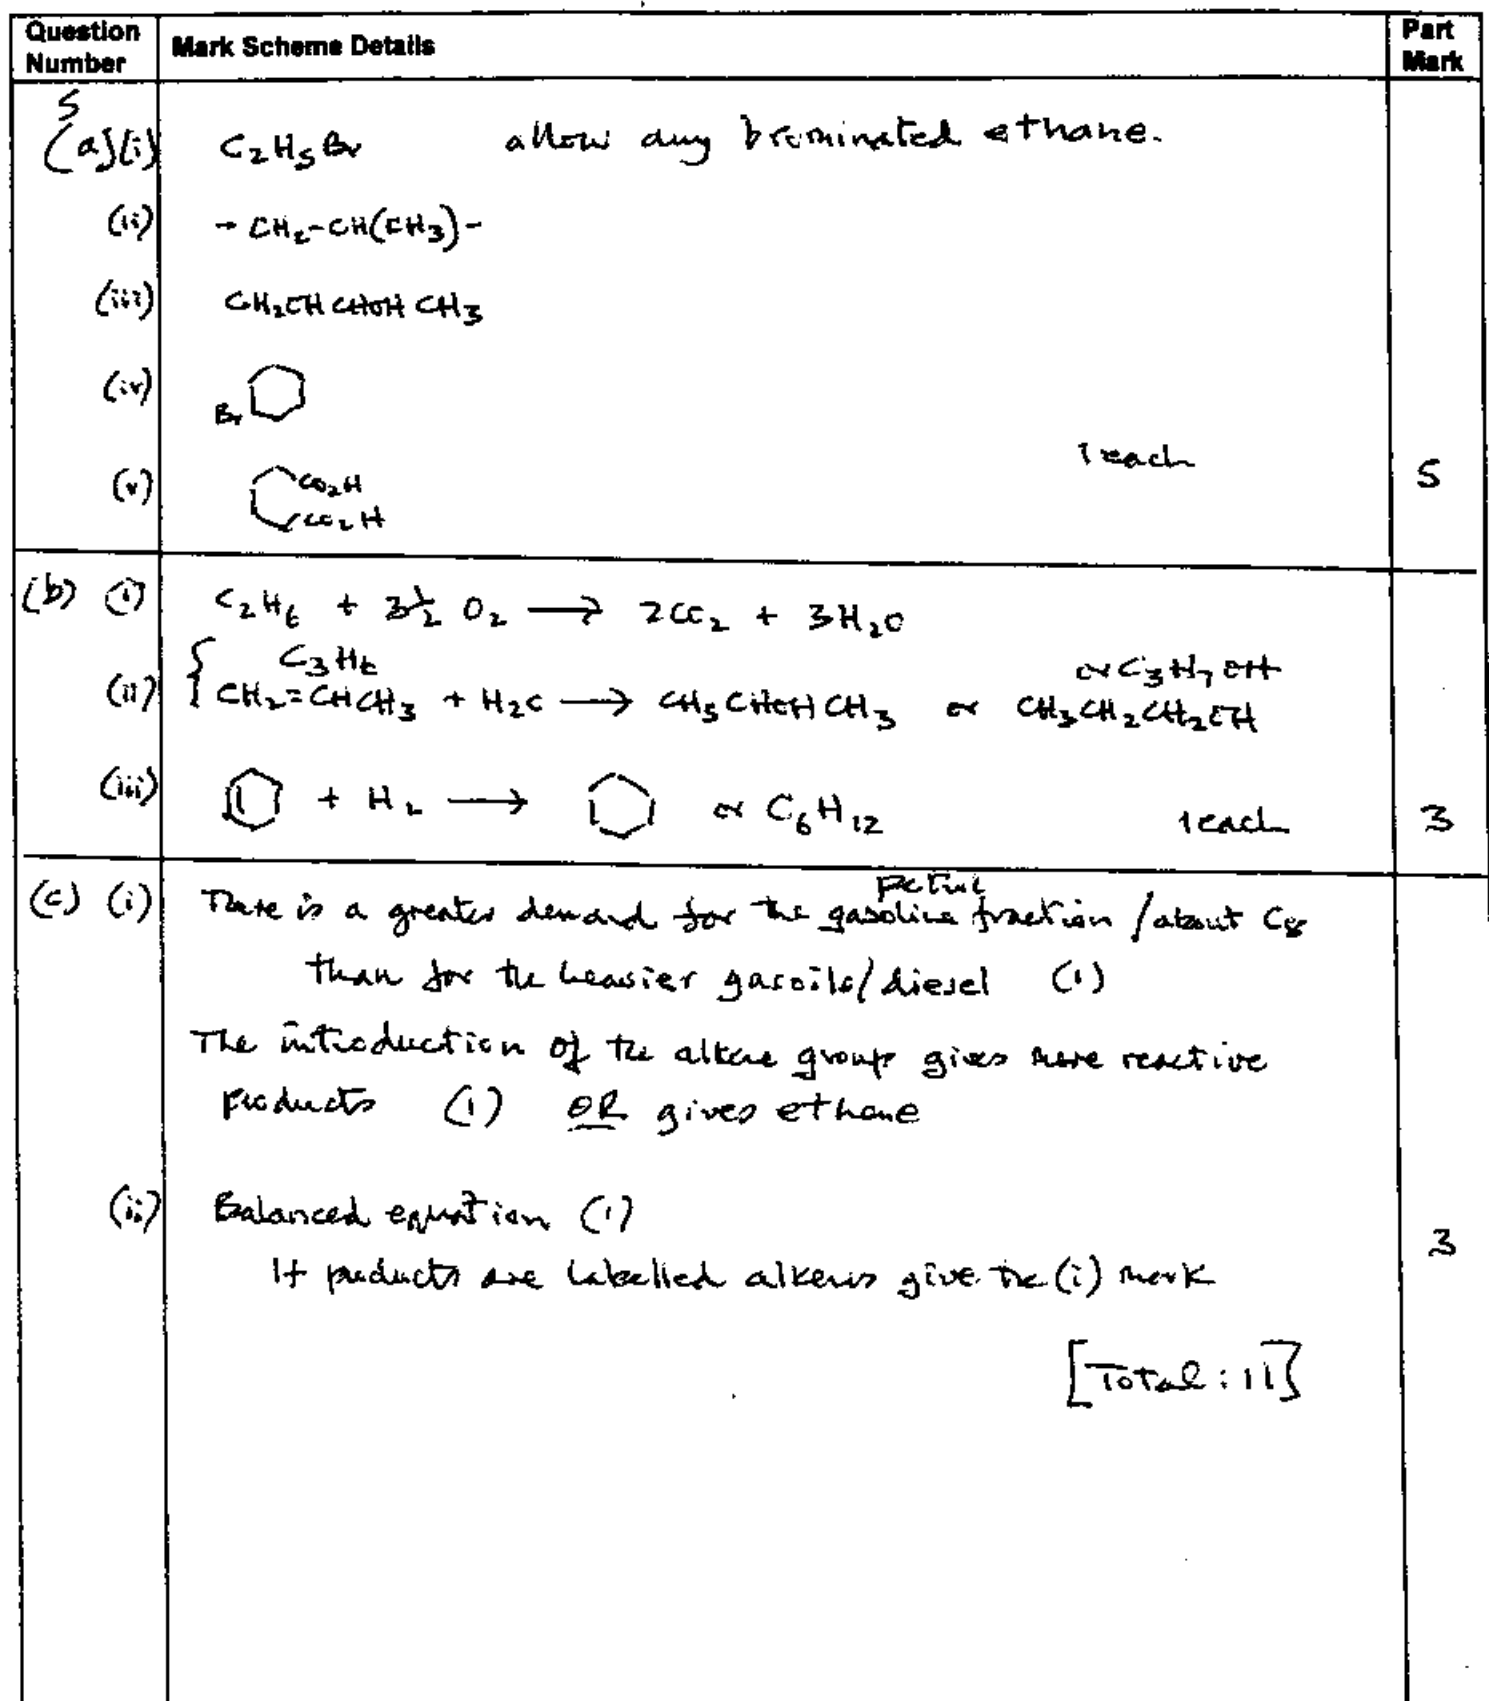 Question Number | Mark Scheme Details | Part Mark
5
(a)(i) C₂H₅Br allow any brominated ethane.
(ii) - CH₂-CH(CH₃)-
(iii) CH₂OH CHOH CH₃
(iv) Br
(v) CO₂H
CO₂H
1 each 5
(b) (i) C₂H₆ + 3½ O₂ → 2CO₂ + 3H₂O
C₃H₆ or C₃H₇OH
(ii) { CH₂=CHCH₃ + H₂O → CH₃CHOHCH₃ or CH₃CH₂CH₂OH
(iii) + H₂ → or C₆H₁₂ 1 each 3
petrol
(c) (i) There is a greater demand for the gasoline fraction / about C₈
than for the heavier gasoils/diesel (1)
The introduction of the alkene group gives more reactive
products (1) OR gives ethane
(ii) Balanced equation (1)
If products are labelled alkenes give the (i) mark
3
[Total : 11]